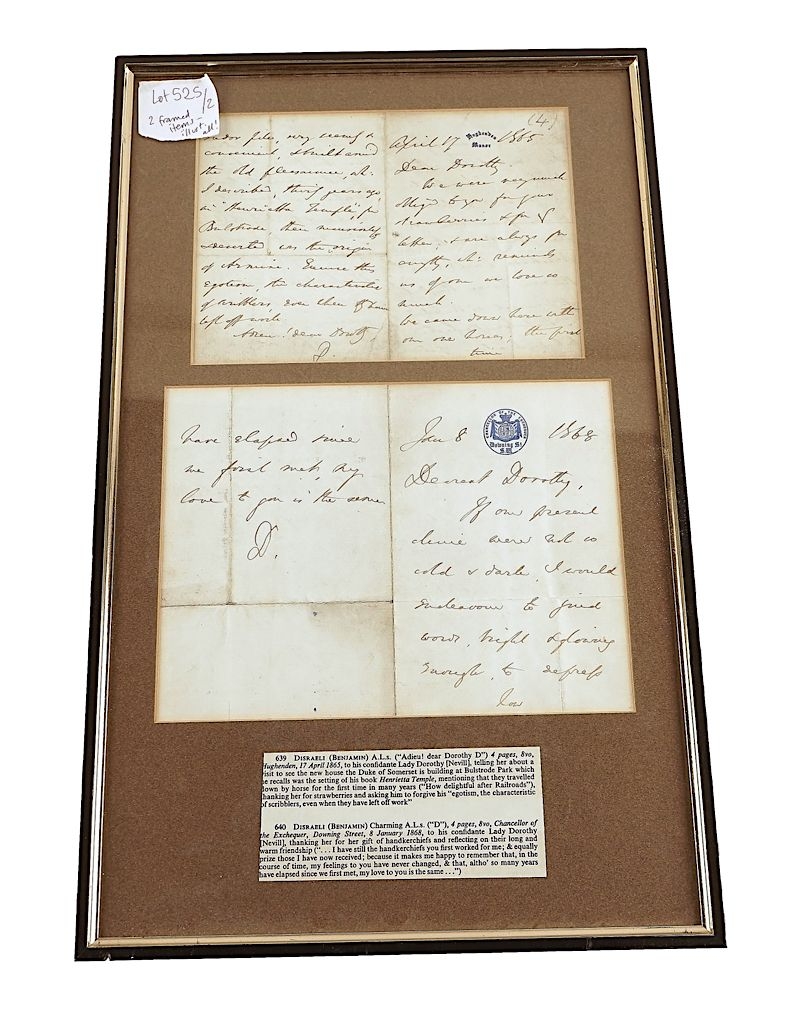 Lot 525/2
2 framed
items -
very
convenient,
the old pleasaunce, wh:
I described, thirty years ago,
in "Henrietta Temple", for
Bulstrode, then
deserted, was the origin
of Armine. Excuse this
egotism, the characteristic
of scribblers even when they have
left off work
Adieu! dear Dorothy!
D.
(4)
Hughenden
Manor
April 17 1865
Dear Dorothy.
We were very much
oblig'd to you for your
strawberries & for yr
letter, & are always for
anything, wh: reminds
us of one we love so
much.
We came down here with
our own horses; the first
time
have elapsed since
we first met, my
love to you is the same
D.
CHANCELLOR OF THE EXCHEQUER
Downing St
S.W.
Jan 8 1868
Dearest Dorothy,
If our present
clime were not so
cold & dark, I would
endeavour to find
words, bright & glowing
enough, to express
how
639 DISRAELI (BENJAMIN) A.L.s. ("Adieu! dear Dorothy D") 4 pages, 8vo,
Hughenden, 17 April 1865, to his confidante Lady Dorothy [Nevill], telling her about a
visit to see the new house the Duke of Somerset is building at Bulstrode Park which
he recalls was the setting of his book Henrietta Temple, mentioning that they travelled
down by horse for the first time in many years ("How delightful after Railroads"),
thanking her for strawberries and asking him to forgive his "egotism, the characteristic
of scribblers, even when they have left off work"
640 DISRAELI (BENJAMIN) Charming A.L.s. ("D"), 4 pages, 8vo, Chancellor of
the Exchequer, Downing Street, 8 January 1868, to his confidante Lady Dorothy
[Nevill], thanking her for her gift of handkerchiefs and reflecting on their long and
warm friendship (". . . I have still the handkerchiefs you first worked for me; & equally
prize those I have now received; because it makes me happy to remember that, in the
course of time, my feelings to you have never changed, & that, altho' so many years
have elapsed since we first met, my love to you is the same . . .")